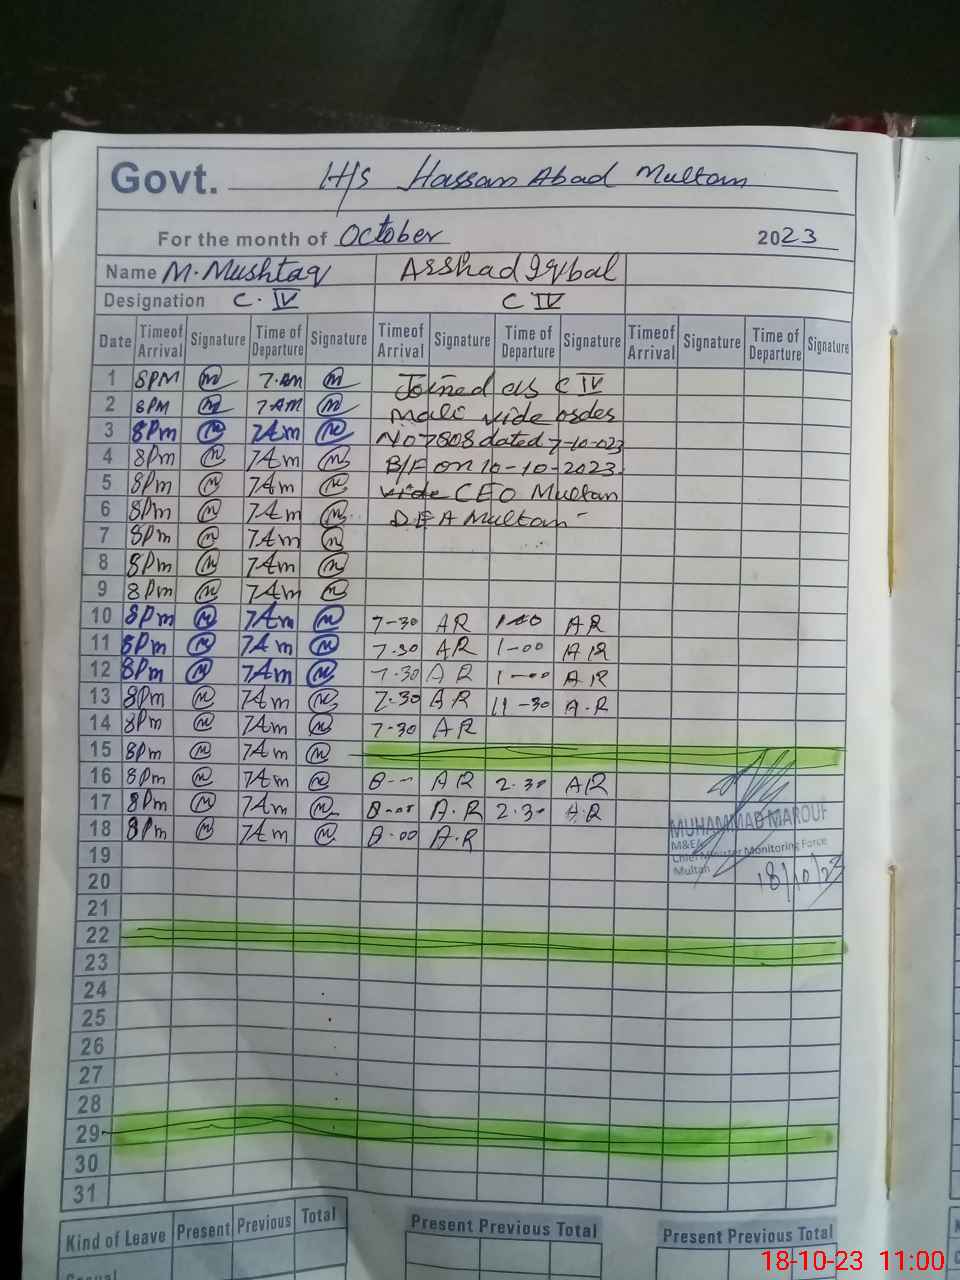 Govt. H/S Hassan Abad Multan
For the month of October 2023
Name M. Mushtaq Arshad Iqbal
Designation C. IV C IV
Date Time of Arrival Signature Time of Departure Signature Time of Arrival Signature Time of Departure Signature Time of Arrival Signature Time of Departure Signature
1 8PM 7.AM Joined as C IV
2 8PM 7AM Mali vide order
3 8Pm 7Am No 7808 dated 7-10-023
4 8Pm 7Am B/F on 10-10-2023.
5 8Pm 7Am vide CEO Multan
6 8Pm 7Am D.E A Multan
7 8Pm 7Am
8 8Pm 7Am
9 8Pm 7Am
10 8Pm 7Am 7-30 AR 1-00 AR
11 8Pm 7Am 7.30 AR 1-00 AR
12 8Pm 7Am 7.30 AR 1-00 AR
13 8Pm 7Am 7.30 AR 11-30 A.R
14 8Pm 7Am 7-30 AR
15 8Pm 7Am
16 8Pm 7Am 8-- AR 2.30 AR
17 8Pm 7Am 8-00 A.R 2.30 A.R
18 8Pm 7Am 8.00 A.R
MUHAMMAD MAROUF
M&EA
Chief Minister Monitoring Force
Multan
18/10/23
19
20
21
22
23
24
25
26
27
28
29
30
31
Kind of Leave Present Previous Total Present Previous Total Present Previous Total
Casual
18-10-23 11:00